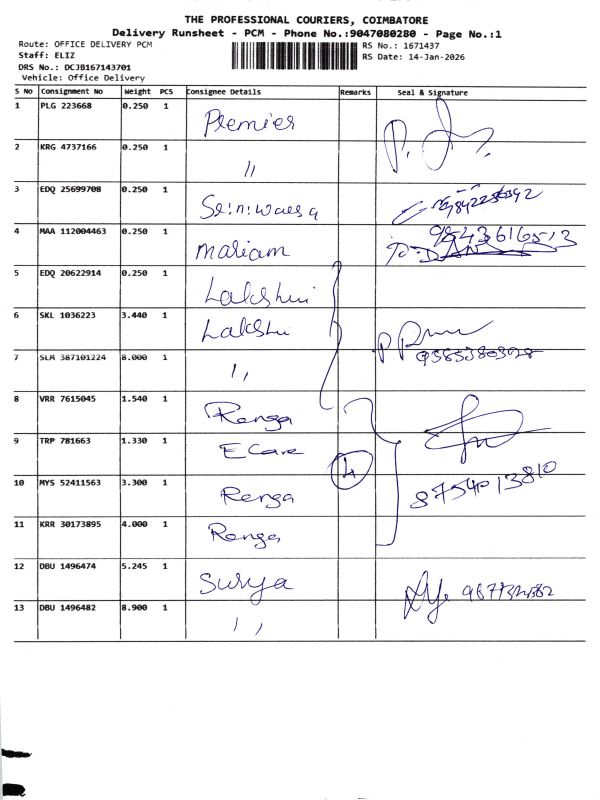 THE PROFESSIONAL COURIERS, COIMBATORE
Delivery Runsheet - PCM - Phone No.:9047080280 - Page No.:1
Route: OFFICE DELIVERY PCM
Staff: ELIZ
DRS No.: DCJB167143701
Vehicle: Office Delivery
RS No.: 1671437
RS Date: 14-Jan-2026
S No Consignment No Weight PCS Consignee Details Remarks Seal & Signature
1 PLG 223668 0.250 1 Premier
2 KRG 4737166 0.250 1 "
3 EDQ 25699708 0.250 1
4 MAA 112004463 0.250 1 Mariam 9543616513
5 EDQ 20622914 0.250 1 Lakshmi
6 SKL 1036223 3.440 1 Lakshu
7 SLM 387101224 8.000 1 ,,
8 VRR 7615045 1.540 1 Renga
9 TRP 781663 1.330 1 E Care
10 MYS 52411563 3.300 1 Renga 4 8754013810
11 KRR 30173895 4.000 1 Renga
12 DBU 1496474 5.245 1 Surya
13 DBU 1496482 8.900 1 ,,